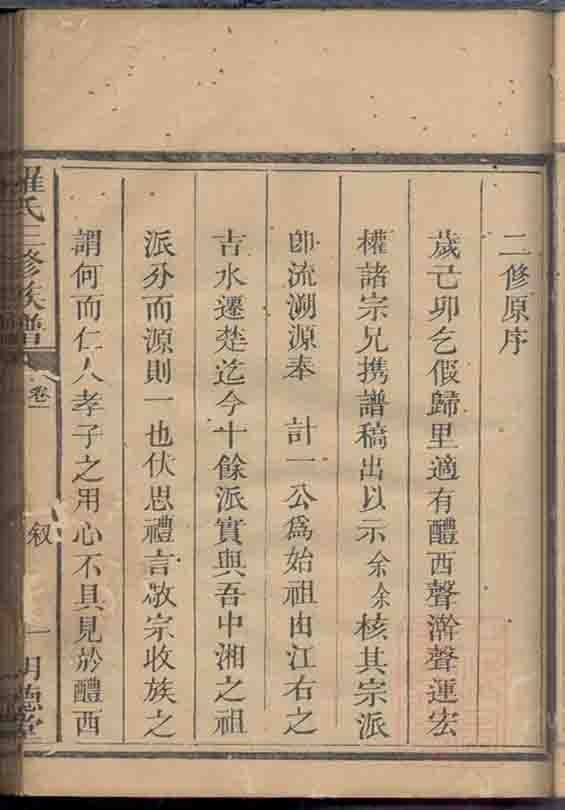 二修原序
歲己卯乞假歸里適有醴西聲澣聲運宏
權諸宗兄携譜稿出以示余余核其宗派
卽流溯源奉　計一公爲始祖由江右之
吉水遷楚迄今十餘派實與吾中湘之祖
派分而源則一也伏思禮言敬宗收族之
謂何而仁人孝子之用心不具見於醴西
羅氏三修族譜
卷一
叙
一
明德堂